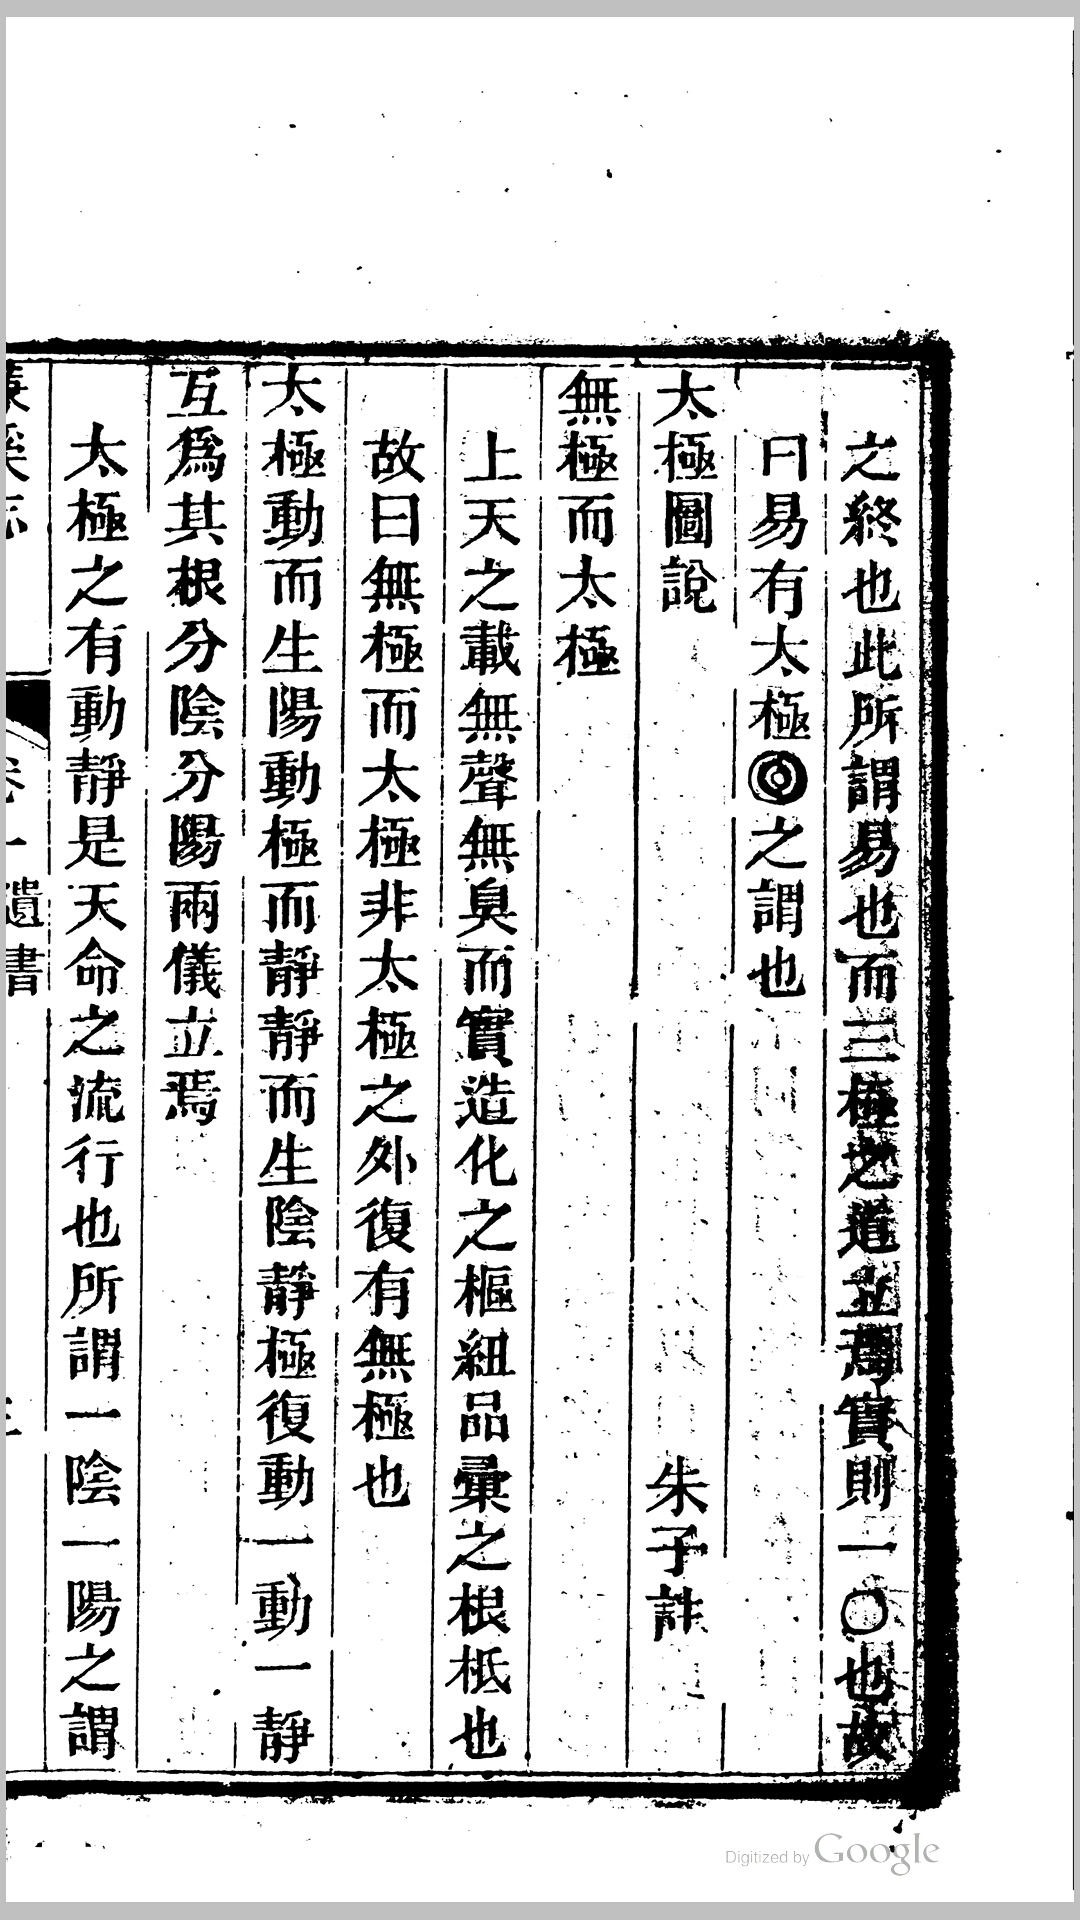 之終也此所謂易也而三極之道立焉實則一〇也故
曰易有太極◎之謂也
太極圖說 朱子註
無極而太極
上天之載無聲無臭而實造化之樞紐品彙之根柢也
故曰無極而太極非太極之外復有無極也
太極動而生陽動極而靜靜而生陰靜極復動一動一靜
互爲其根分陰分陽兩儀立焉
太極之有動靜是天命之流行也所謂一陰一陽之謂
卷一 遺書
Digitized by Google